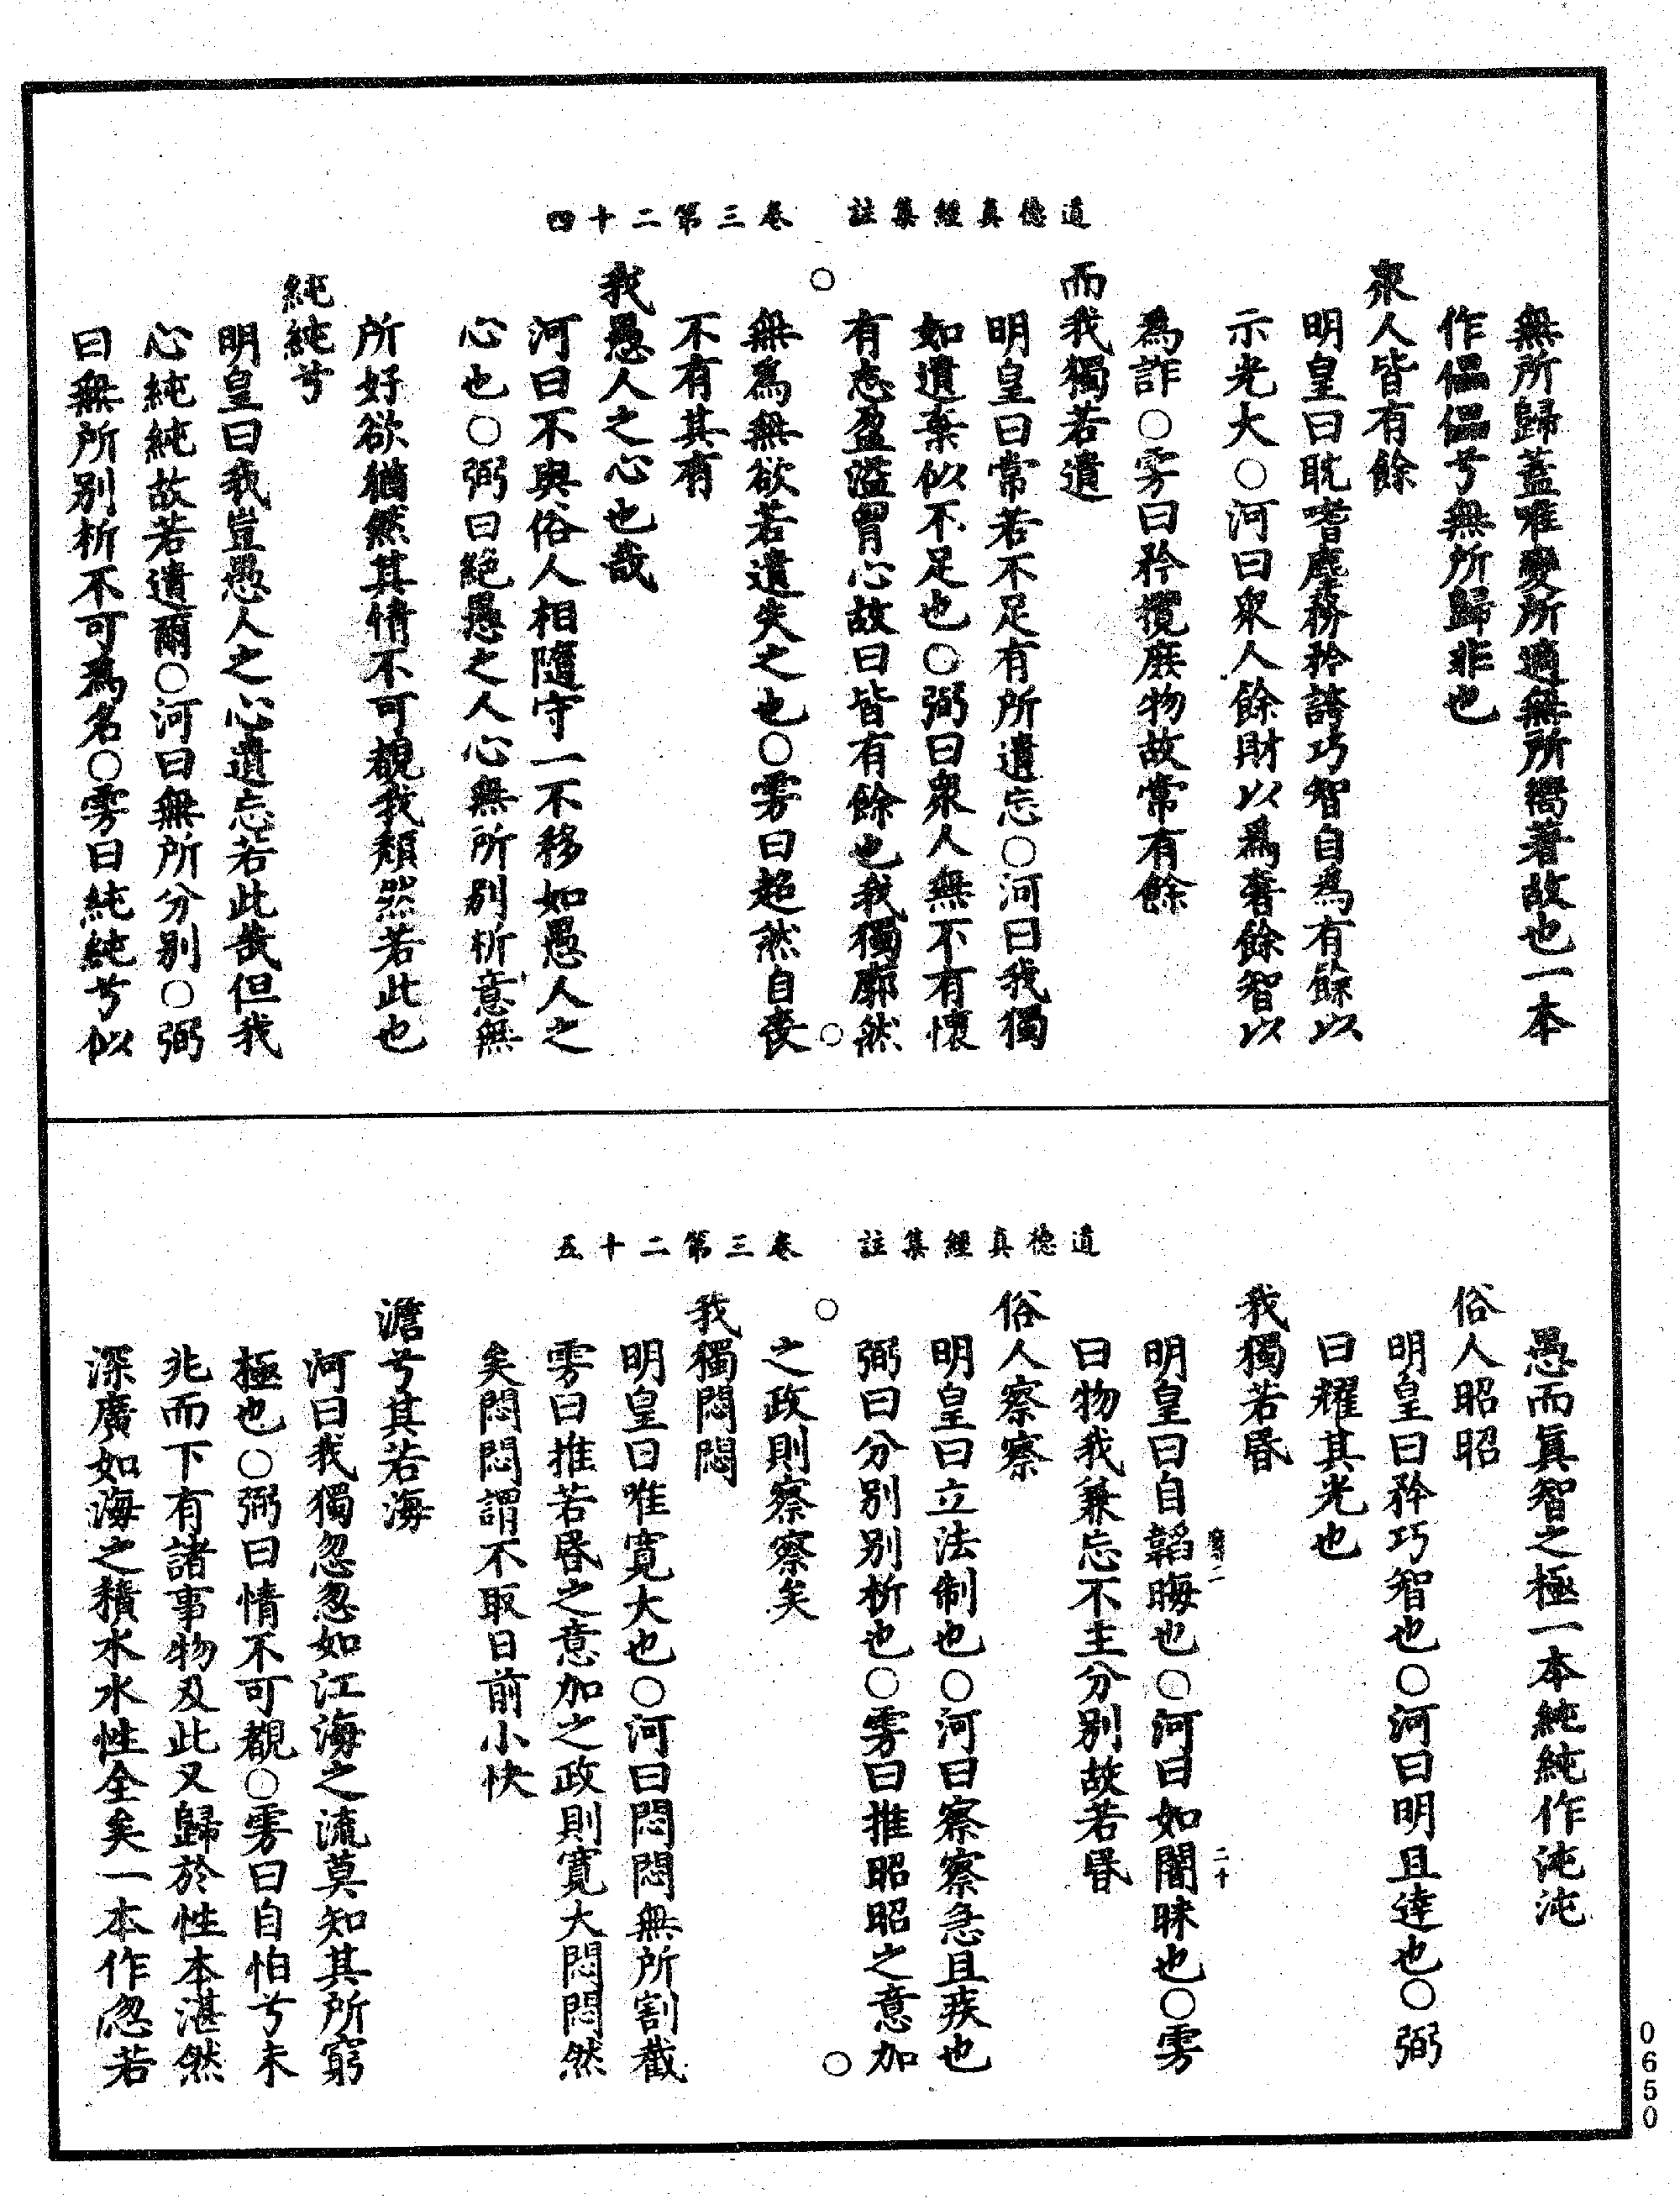 道德真經集註　卷三第二十四
無所歸蓋唯變所適無所嚮著故也一本
作儡儡兮無所歸非也
衆人皆有餘
明皇曰耽嗜塵務矜誇巧智自為有餘以
示光大○河曰衆人餘財以為奢餘智以
為詐○雱曰矜攬庶物故常有餘
而我獨若遺
明皇曰常若不足有所遺忘○河曰我獨
如遺棄似不足也○弼曰衆人無不有懷
有志盈溢胷心故曰皆有餘也我獨廓然
無為無欲若遺失之也○雱曰超然自喪
不有其有
我愚人之心也哉
河曰不與俗人相隨守一不移如愚人之
心也○弼曰絕愚之人心無所別析意無
所好欲猶然其情不可覩我頹然若此也
純純兮
明皇曰我豈愚人之心遺忘若此哉但我
心純純故若遺爾○河曰無所分別○弼
曰無所別析不可為名○雱曰純純兮似
道德真經集註　卷三第二十五
愚而真智之極一本純純作沌沌
俗人昭昭
明皇曰矜巧智也○河曰明且達也○弼
曰耀其光也
我獨若昬
二十
明皇曰自韜晦也○河曰如闇昧也○雱
曰物我兼忘不主分別故若昬
俗人察察
明皇曰立法制也○河曰察察急且疾也
弼曰分別別析也○雱曰推昭昭之意加
之政則察察矣
我獨悶悶
明皇曰唯寬大也○河曰悶悶無所割截
雱曰推若昬之意加之政則寬大悶悶然
矣悶悶謂不取目前小快
澹兮其若海
河曰我獨忽忽如江海之流莫知其所窮
極也○弼曰情不可覩○雱曰自怕兮未
兆而下有諸事物及此又歸於性本湛然
深廣如海之積水水性全矣一本作忽若
0650